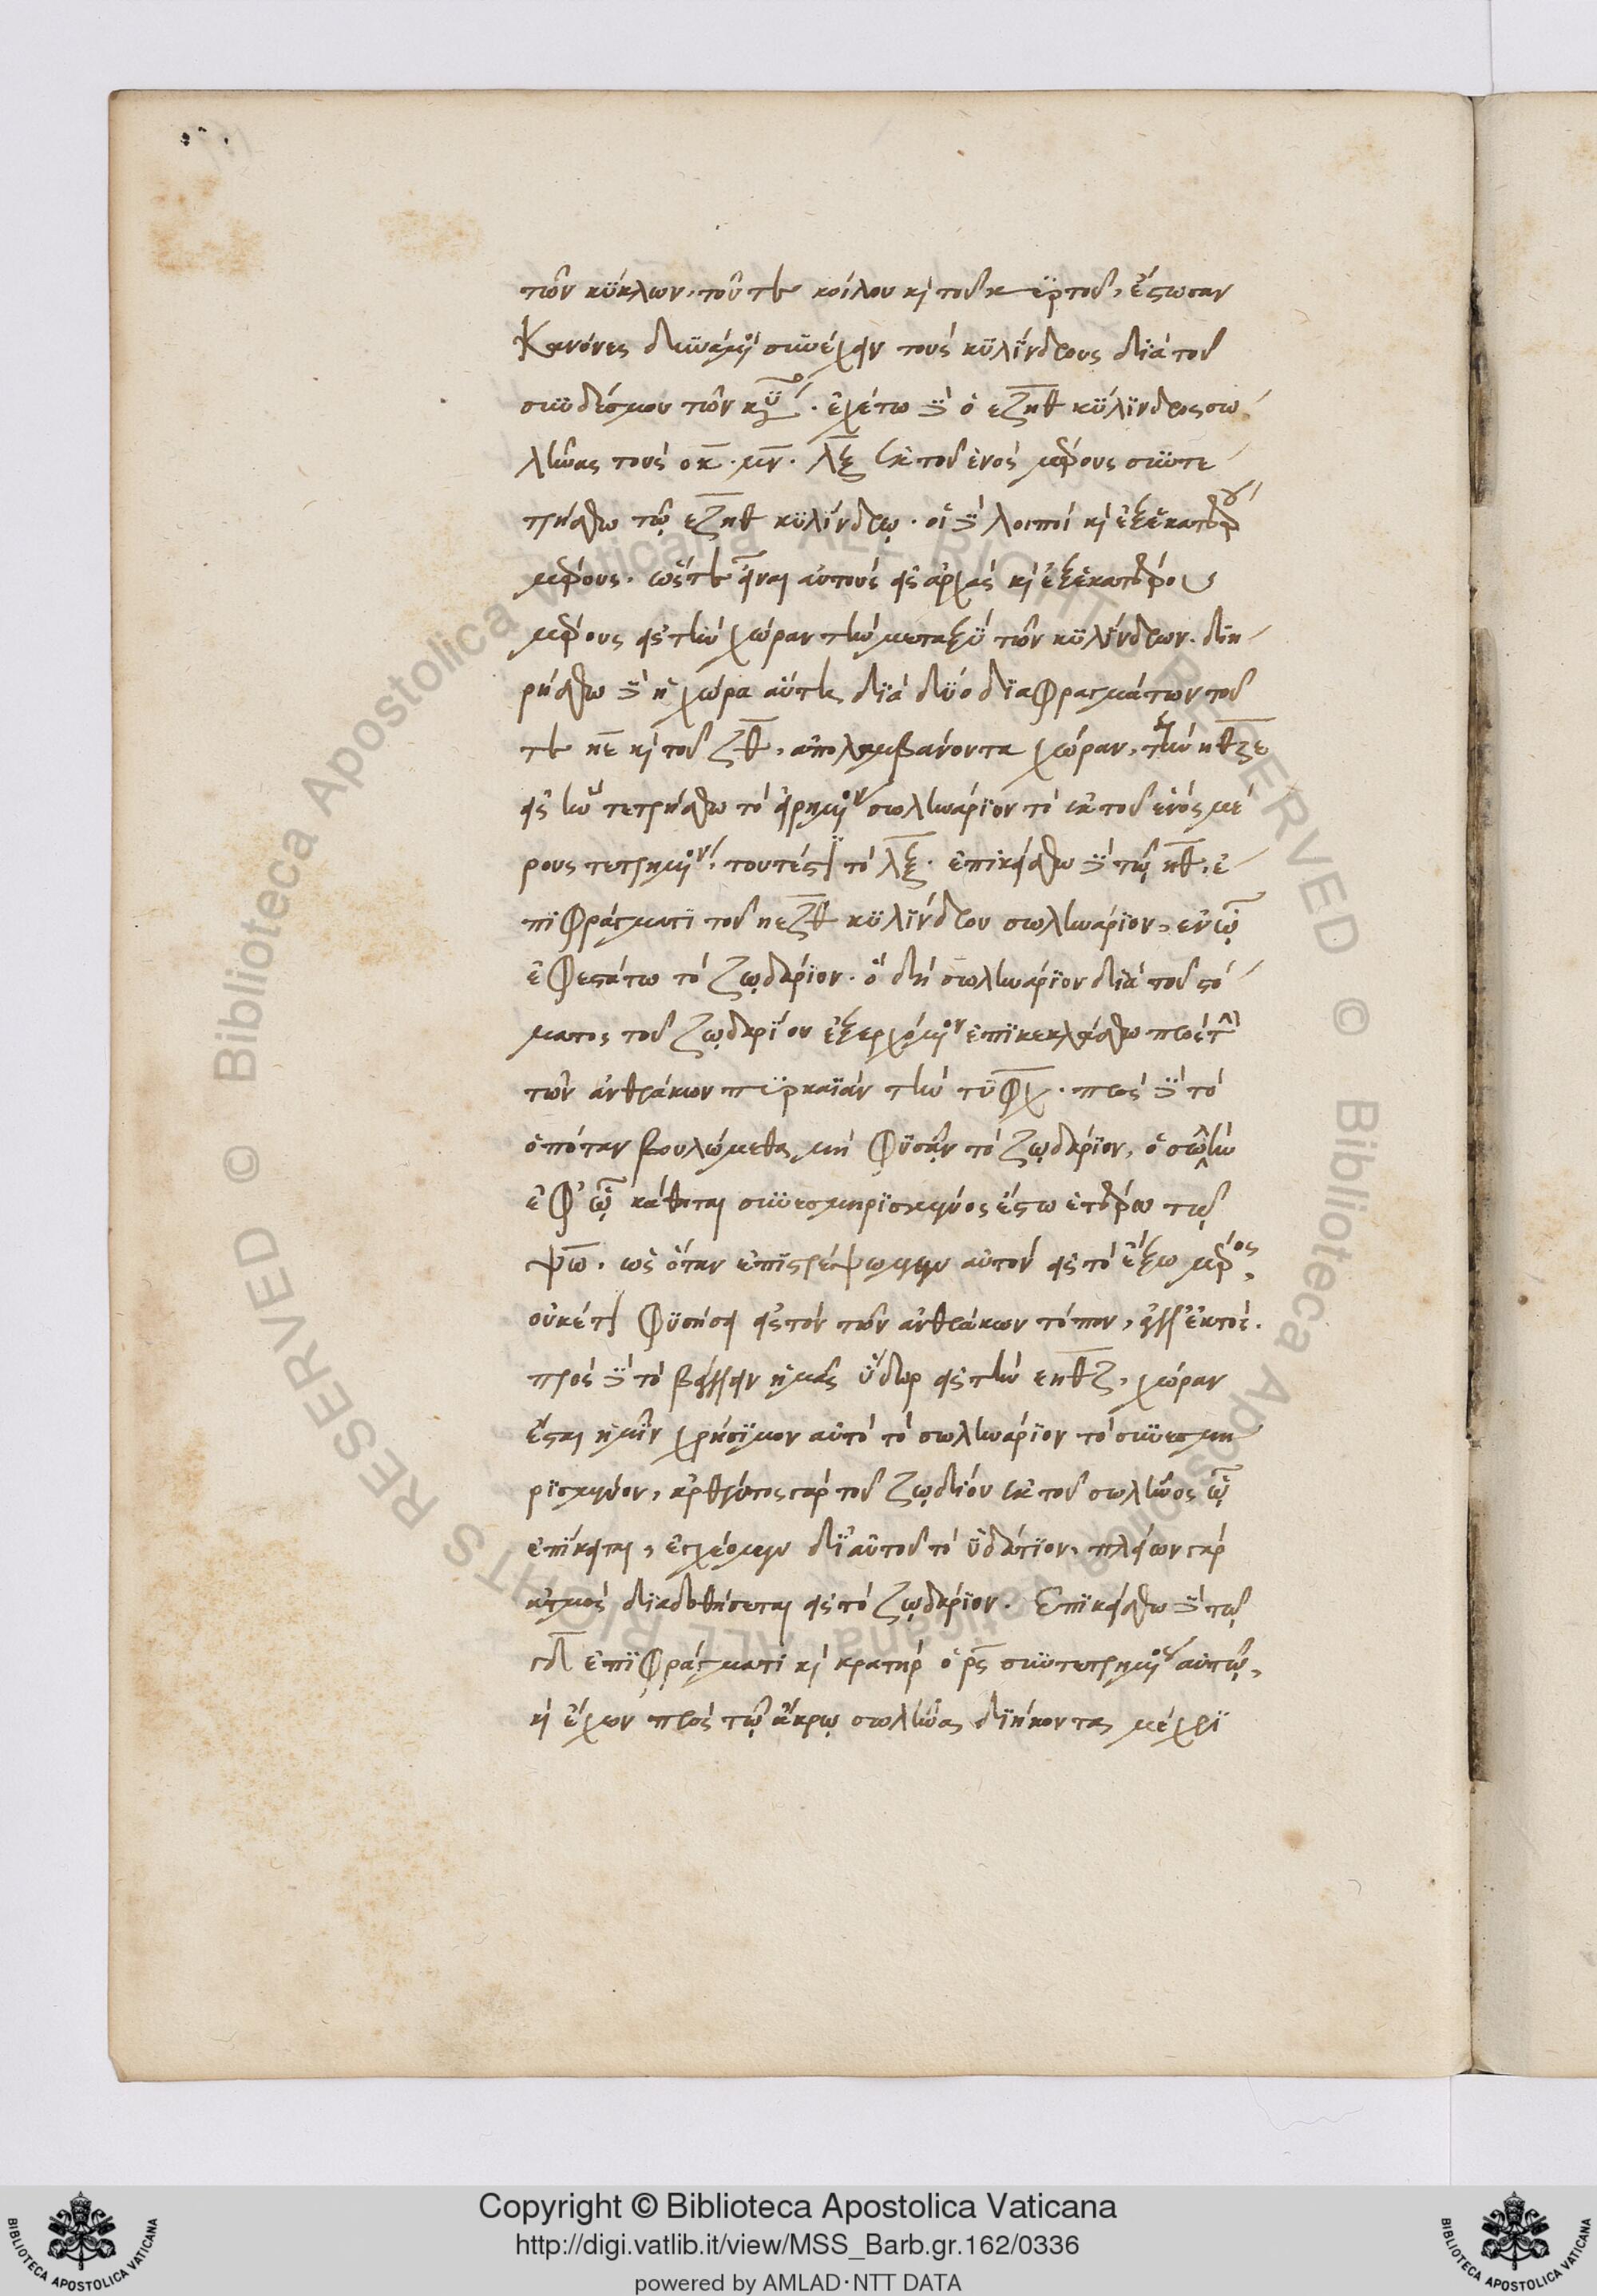 τῶν κύκλων, τοῦ τε κοίλου καὶ τοῦ κυρτοῦ, ἔστωσαν
κανόνες δυνάμενοι συνέχειν τοὺς κυλίνδρους διὰ τοῦ
συνδέσμου τῶν
ἐχέτω δὲ ὁ εζηθ κύλινδρος σω
λῆνας τοὺς οκ. μν. λξ ἐκ τοῦ ἑνὸς μέρους συντε
τρήσθω τῷ εζηθ κυλίνδρῳ. οἱ δὲ λοιποὶ καὶ ἐξ ἑκατέρου
μέρους. ὥστε εἶναι αὐτοὺς εἰς ἀρχὰς καὶ ἐξ ἑκατέρου
μέρους εἰς τὴν χώραν τὴν μεταξὺ τῶν κυλίνδρων. διῃ
ρήσθω δὲ ἡ χώρα αὕτη διὰ δύο διαφραγμάτων τοῦ
τε ηε καὶ τοῦ ζθ, ἀπολαμβάνοντα χώραν, τὴν ηθζε
εἰς ἣν τετρήσθω τὸ εἰρημένον σωληνάριον τὸ ἐκ τοῦ ἑνὸς μέ
ρους τετρημένον. τουτέστι τὸ λξ. ἐπικείσθω δὲ τῷ ηθ, ἐ
πιφράγματι τοῦ ηεζθ κυλίνδρου σωληνάριον, ἐν ᾧ
ἐφεστάτω τὸ ζῳδάριον. ὃ δὴ σωληνάριον διὰ τοῦ στό
ματος τοῦ ζῳδαρίου ἐξερχόμενον ἐπικεκλάσθω πρὸς τὴν
τῶν ἀνθράκων πυρκαϊὰν τὴν τυφχ. πρὸς δὲ τὸ
ὁπόταν βουλώμεθα μὴ φυσᾶν τὸ ζῳδάριον, ὁ σωλὴν
ἐφ' ᾧ κάθηται συνεσμηρισμένος ἔστω ἑτέρῳ τῷ
ψω. ὡς ὅταν ἐπιστρέψωμεν αὐτὸν εἰς τὸ ἔξω μέρος,
οὐκέτι φυσήσει εἰς τὸν τῶν ἀνθράκων τόπον, ἀλλ' ἐκτός.
πρὸς δὲ τὸ βάλλειν ἡμᾶς ὕδωρ εἰς τὴν εηθζ, χώραν
ἔσται ἡμῖν χρήσιμον αὐτὸ τὸ σωληνάριον τὸ συνεσμη
ρισμένον, ἀρθέντος γὰρ τοῦ ζῳδίου ἐκ τοῦ σωλῆνος ᾧ
ἐπίκειται, ἐγχέομεν δι' αὐτοῦ τὸ ὑδάτιον, πλείων γὰρ
ἀτμὸς διαδοθήσεται εἰς τὸ ζῳδάριον. Ἐπικείσθω δὲ τῷ
γδ ἐπιφράγματι καὶ κρατὴρ ὁ ρς συντετρημένος αὐτῷ,
καὶ ἔχων πρὸς τῷ ἄκρῳ σωλῆνας διήκοντας μέχρι
Copyright © Biblioteca Apostolica Vaticana
http://digi.vatlib.it/view/MSS_Barb.gr.162/0336
powered by AMLAD·NTT DATA